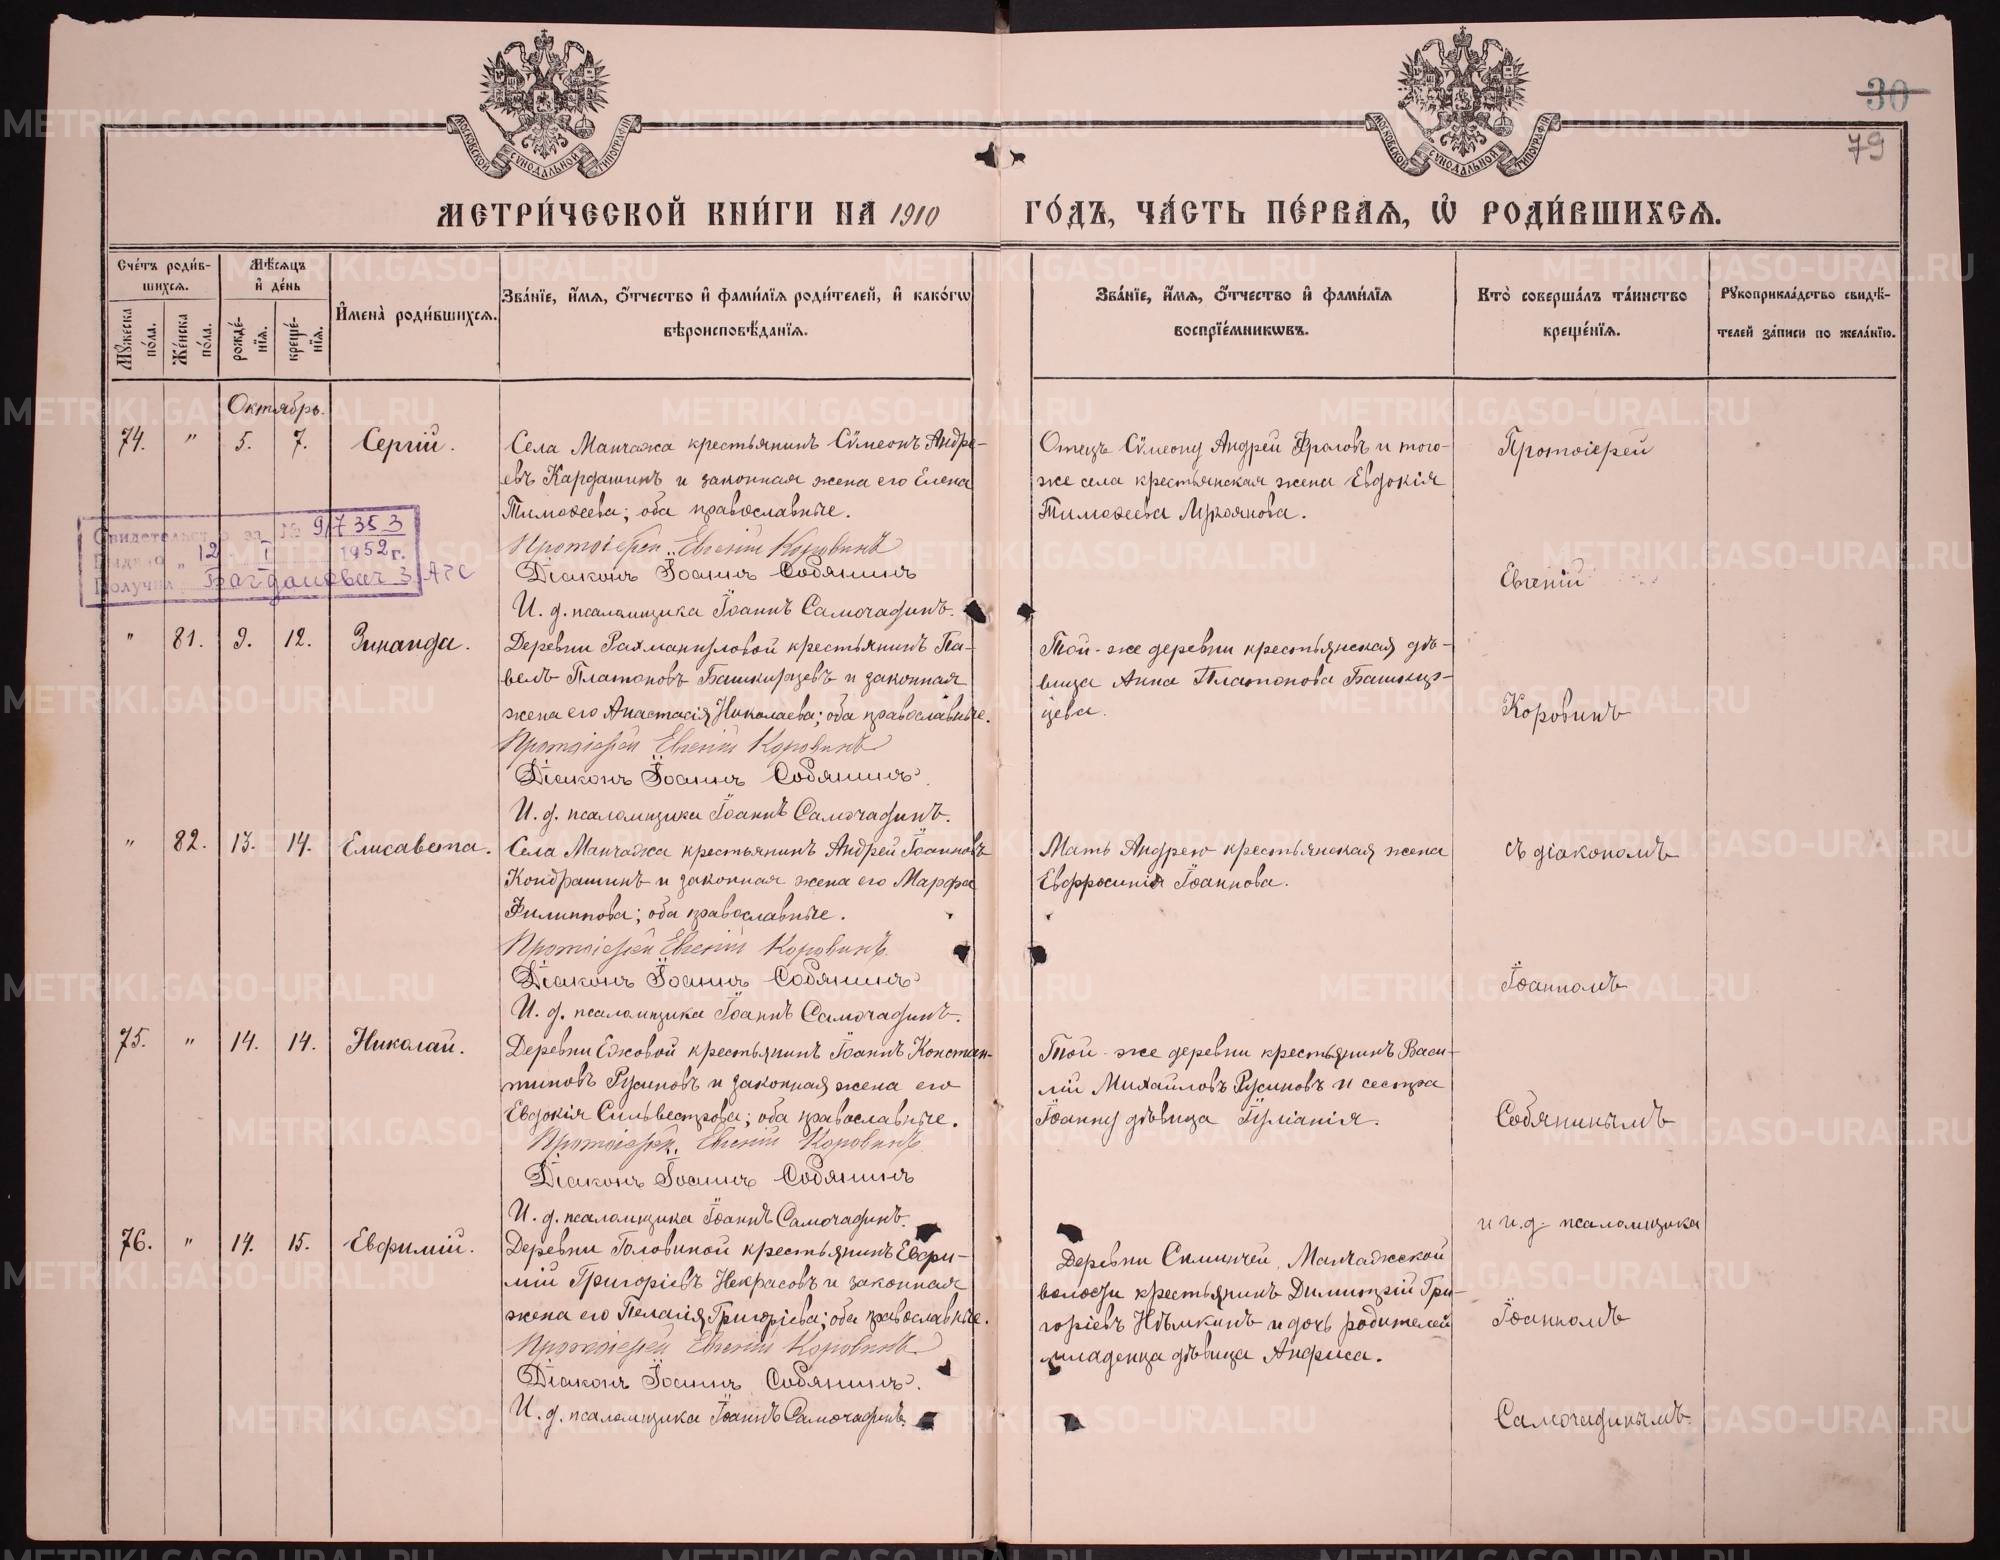 МОСКОВСКОЙ СѴНОДАЛЬНОЙ ТИПОГРАФІИ
МОСКОВСКОЙ СѴНОДАЛЬНОЙ ТИПОГРАФІИ
30
79
МЕТРИ́ЧЕСКОЙ КНИ́ГИ НА 1910 ГО́ДЪ, ЧА́СТЬ ПЕ́РВАѦ, Ѡ҆ РОДИ́ВШИХСѦ.
Сче́тъ роди́в-
шихсѧ.
Мꙋ́жеска по́ла.
Же́нска по́ла.
Мѣ́сѧцъ
и҆ де́нь
рожде́-
нїѧ.
креще́-
нїѧ.
И҆мена̀ роди́вшихсѧ.
Зва́нїе, и҆́мѧ, ѻ҆́тчество и҆ фами́лїѧ роди́телей, и҆ како́гѡ
вѣроисповѣ́данїѧ.
Зва́нїе, и҆́мѧ, ѻ҆́тчество и҆ фами́лїѧ
воспрїе́мникѡвъ.
Кто̀ соверша́лъ та́инство
креще́нїѧ.
Рꙋкоприкла́дство свидѣ́-
телей за́писи по жела́нїю.
Октябрь.
74. " 5. 7. Сергій.
Села Манчажа крестьянинъ Сѵмеонъ Андре-
евъ Кардашинъ и законная жена его Елена
Тимоѳеева; оба православные.
Протоіерей Евгеній Коровинъ
Діаконъ Іоаннъ Собянинъ
И. д. псаломщика Іоаннъ Самочадинъ.
Отецъ Сѵмеону Андрей Фроловъ и того-
же села крестьянская жена Евдокія
Тимоѳеева Мукоянова.
Свидетельство за № 9/7353
Выдано " 12 " I 1952 г.
Получил Багданович З. АЧС
" 81. 9. 12. Зинаида.
Деревни Рахмангуловой крестьянинъ Па-
велъ Платоновъ Башкирцевъ и законная
жена его Анастасія Николаева; оба православные.
Протоіерей Евгеній Коровинъ
Діаконъ Іоаннъ Собянинъ.
И. д. псаломщика Іоаннъ Самочадинъ.
Той-же деревни крестьянская дѣ-
вица Анна Платонова Башкир-
цева.
" 82. 13. 14. Елисавета.
Села Манчажа крестьянинъ Андрей Іоанновъ
Кондрашинъ и законная жена его Марфа
Филиппова; оба православные.
Протоіерей Евгеній Коровинъ.
Діаконъ Іоаннъ Собянинъ
И. д. псаломщика Іоаннъ Самочадинъ.
Мать Андрею крестьянская жена
Евфросинія Іоаннова.
75. " 14. 14. Николай.
Деревни Ежовой крестьянинъ Іоаннъ Констан-
тиновъ Русиновъ и законная жена его
Евдокія Сильвестрова; оба православные.
Протоіерей Евгеній Коровинъ.
Діаконъ Іоаннъ Собянинъ
И. д. псаломщика Іоаннъ Самочадинъ.
Той-же деревни крестьянинъ Васи-
лій Михайловъ Русиновъ и сестра
Іоанну дѣвица Іуліанія.
76. " 14. 15. Евфимій.
Деревни Головиной крестьянинъ Евфи-
мій Григоріевъ Некрасовъ и законная
жена его Пелагія Григоріева; оба православные.
Протоіерей Евгеній Коровинъ
Діаконъ Іоаннъ Собянинъ.
И. д. псаломщика Іоаннъ Самочадинъ.
Деревни Симинчей, Манчажской
волости крестьянинъ Димитрій Гри-
горіевъ Нѣмкинъ и дочь родителей
младенца дѣвица Анфиса.
Протоіерей
Евгеній
Коровинъ
съ діакономъ
Іоанномъ
Собянинымъ
и и. д. псаломщика
Іоанномъ
Самочадинымъ.
METRIKI.GASO-URAL.RU